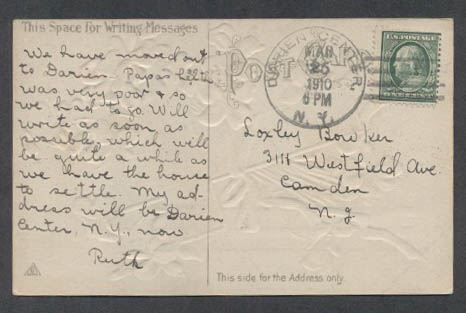 This Space For Writing Messages
We have moved out
to Darien. Papas health
was very poor & so
we had to go. Will
write as soon as
possible, which will
be quite a while as
we have the house
to settle. My ad-
dress will be Darien
Center, N.Y., now
Ruth
DARIEN CENTER,
MAR
25
1910
6 PM
N.Y.
U.S. POSTAGE
Loxley Bowker
3111 Westfield Ave.
Camden
N.J.
This side for the Address only.